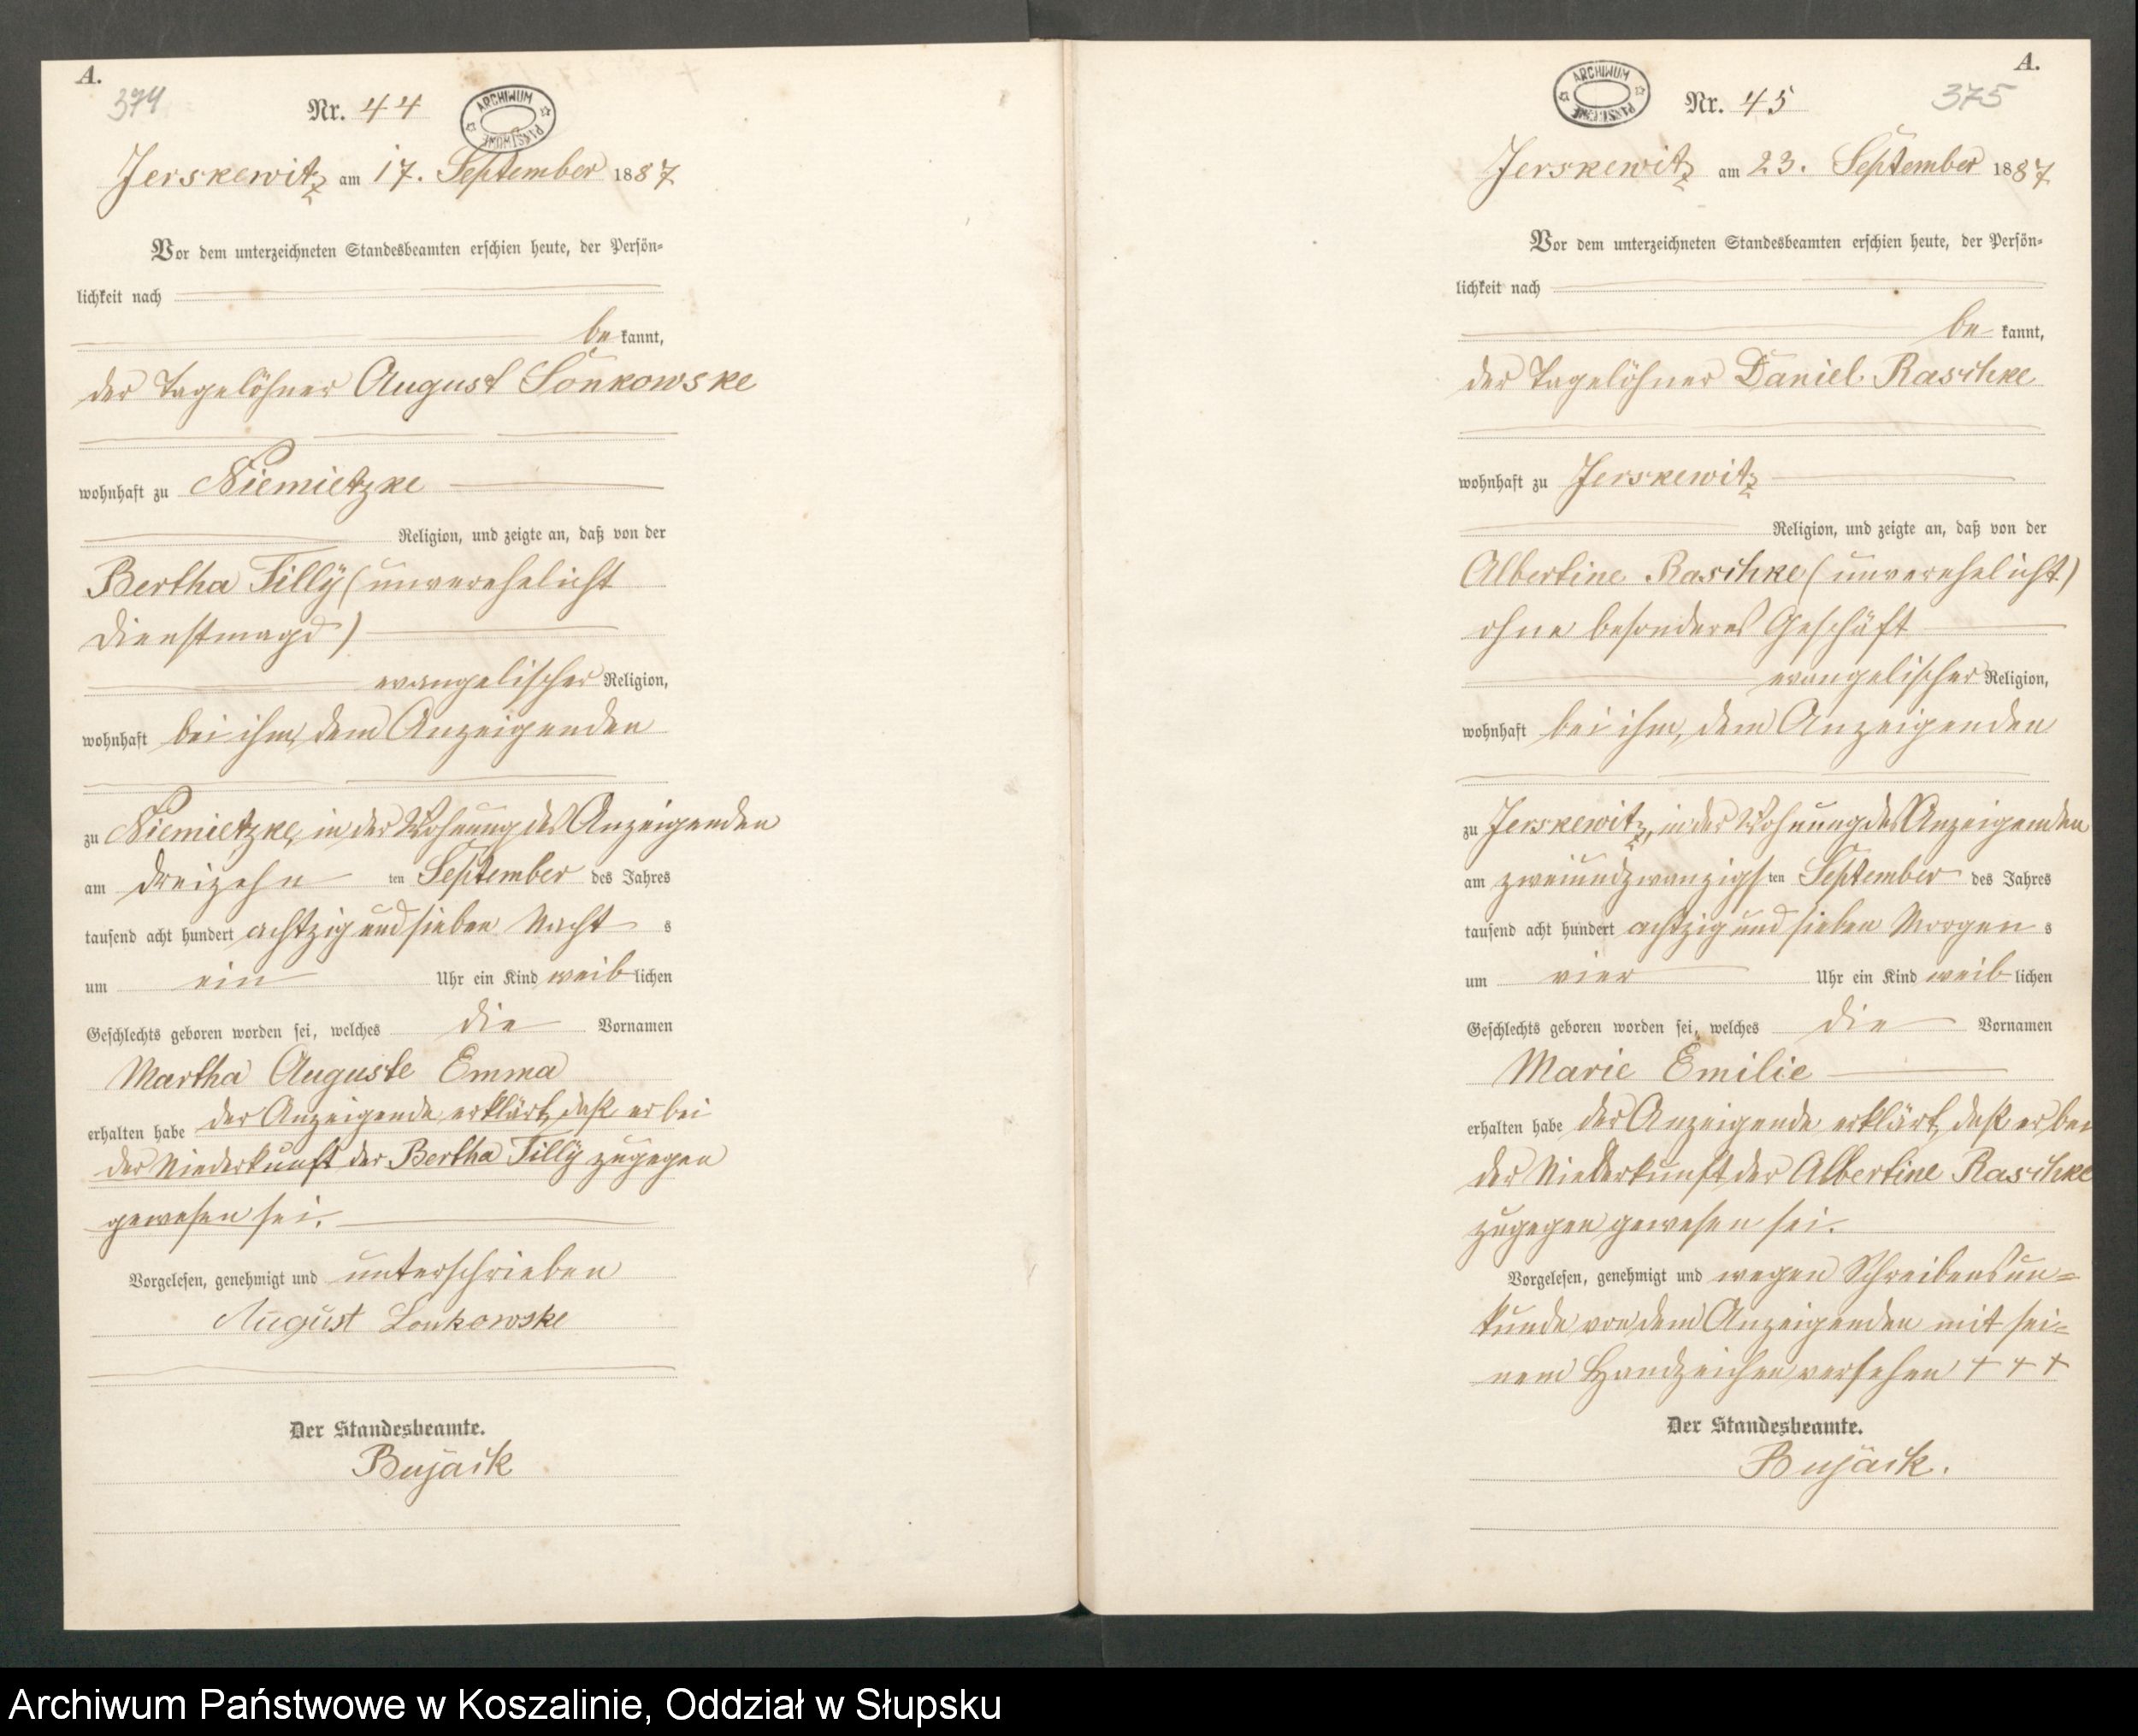 A.
374
Nr. 44
ARCHIWUM PAŃSTWOWE
Jerskewitz am 17. September 1887
Vor dem unterzeichneten Standesbeamten erschien heute, der Persön-
lichkeit nach
be kannt,
der Tagelöhner August Lonkowske
wohnhaft zu Niemietzke
Religion, und zeigte an, daß von der
Bertha Tilly (unverehelicht
Dienstmagd)
evangelischer Religion,
wohnhaft bei ihm, dem Anzeigenden
zu Niemietzke, in der Wohnung des Anzeigenden
am dreizehn ten September des Jahres
tausend acht hundert achtzig und sieben Nacht s
um ein Uhr ein Kind weib lichen
Geschlechts geboren worden sei, welches die Vornamen
Martha Auguste Emma
erhalten habe der Anzeigende erklärt, daß er bei
der Niederkunft der Bertha Tilly zugegen
gewesen sei.
Vorgelesen, genehmigt und unterschrieben
August Lonkowske
Der Standesbeamte.
Bujack
A.
375
ARCHIWUM PAŃSTWOWE
Nr. 45
Jerskewitz am 23. September 1887
Vor dem unterzeichneten Standesbeamten erschien heute, der Persön-
lichkeit nach
be kannt,
der Tagelöhner Daniel Raschke
wohnhaft zu Jerskewitz
Religion, und zeigte an, daß von der
Albertine Raschke (unverehelicht)
ohne besonderes Geschäft
evangelischer Religion,
wohnhaft bei ihm, dem Anzeigenden
zu Jerskewitz, in der Wohnung des Anzeigenden
am zweiundzwanzigs ten September des Jahres
tausend acht hundert achtzig und sieben Morgen s
um vier Uhr ein Kind weib lichen
Geschlechts geboren worden sei, welches die Vornamen
Marie Emilie
erhalten habe der Anzeigende erklärt, daß er bei
der Niederkunft der Albertine Raschke
zugegen gewesen sei.
Vorgelesen, genehmigt und wegen Schreibensun-
kunde von dem Anzeigenden mit sei-
nem Handzeichen versehen + + +
Der Standesbeamte.
Bujack.
Archiwum Państwowe w Koszalinie, Oddział w Słupsku